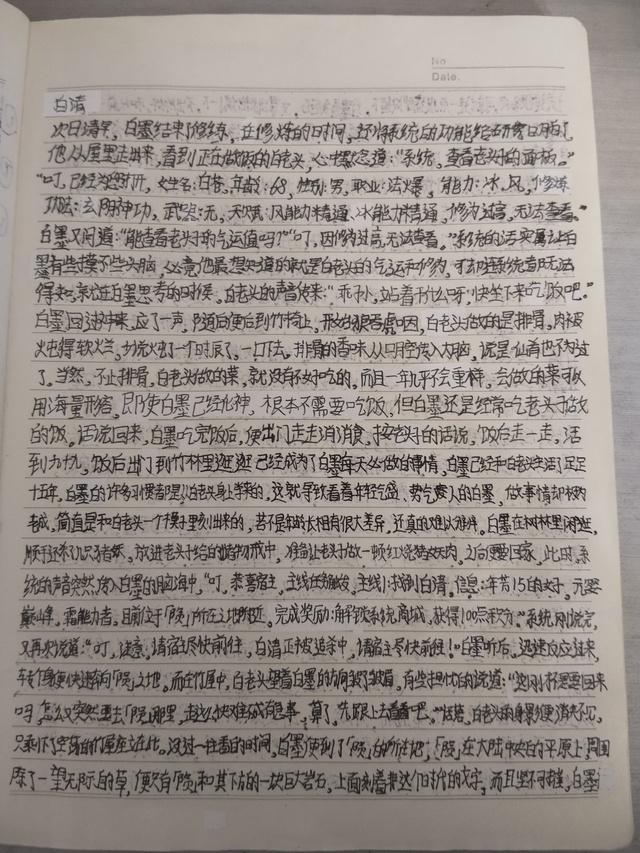 No
Date.
白清
次日清早，白墨结束了修练，在修炼的时间，还将系统的功能给研究明白了，
他从屋里走出来，看到正在做饭的老头，心中默念道："系统，查看老头的面板。"
"叮，已经为您打开，女生名：白苍，年龄：68，性别：男，职业：法爆，能力：冰、风，修炼
功法：玄阴神功，武器：无，天赋：风能力精通、冰能力精通，修为过高，无法查看。"
白墨又问道："能查看老头的气运值吗？""叮，因修为过高，无法查看。"系统的话实属让白
墨有些摸不着头脑，必竟他最想知道的就是白老头的气运和修为，可却连系统都无法
得知，就在白墨思考的时候，白老头的声音传来："乖孙，站着干什么呀，快坐下来吃饭吧。"
白墨回过神来，应了一声，随后便后到竹椅上，开始狼吞虎咽，白老头做的是排骨，肉被
火屯得软烂，少说火屯了一个时辰了，一口下去，排骨的香味从口腔传入大脑，说是仙首也不为过
了。当然，不止排骨，白老头做的菜，就没有不好吃的。而且一年几乎不会重样，会做的菜可以
用海量形容，即使白墨已经化神，根本不需要吃饭，但白墨还是经常吃老头子做
的饭。话说回来，白墨吃完饭后，便出门走走消消食，按老头子的话说，饭后走一走，活
到九十九，饭后出门到竹林里逛逛已经成为了白墨每天必做的事情，白墨已经和白老头生活了足足
十五年，白墨的许多习惯都是从白老头身上学来的，这就导致看着年轻气盛、勇气袭人的白墨，做事情却极为
老成，简直是和白老头一个模子里刻出来的，若不是年龄长相有很大差异，还真的难以难辨。白墨在树林里闲逛，
顺手还杀了几只猪妖，放进老头子给的储物戒中，准备让老头子做一顿红烧猪妖肉。之后便要回家，此时，系
统的声音突然传入白墨的脑海中，"叮，恭喜宿主，主线任务触发，主线1：找到白清。信息：年芳15的女子，元婴
巅峰，霜能力者，目前位于「陨」所在之地附近。完成奖励：解锁系统商城，获得100点积分。"系统刚说完，
又再次说道："叮，注意，请宿主尽快前往，白清正被追杀中，请宿主尽快前往！"白墨听后，迅速反应过来，
转身便快速奔向「陨」之地。而在竹屋中，白老头望着白墨的方向皱了皱眉，有些担忧的说道："这小子不是要回来
吗，怎么又突然要去「陨」那里，走这么快准没有急事，算了，先跟上去看看吧。"话落，白老头的身影便消失不见，
只剩下了空荡的竹屋立在此。没过一柱香的时间，白墨便到了「陨」的所在地，「陨」在大陆中央的平原上，周围
除了一望无际的草，便只有「陨」和其下方的一块巨大岩石，上面刻着来这个旧时代的文字，而且坚不可摧，白墨